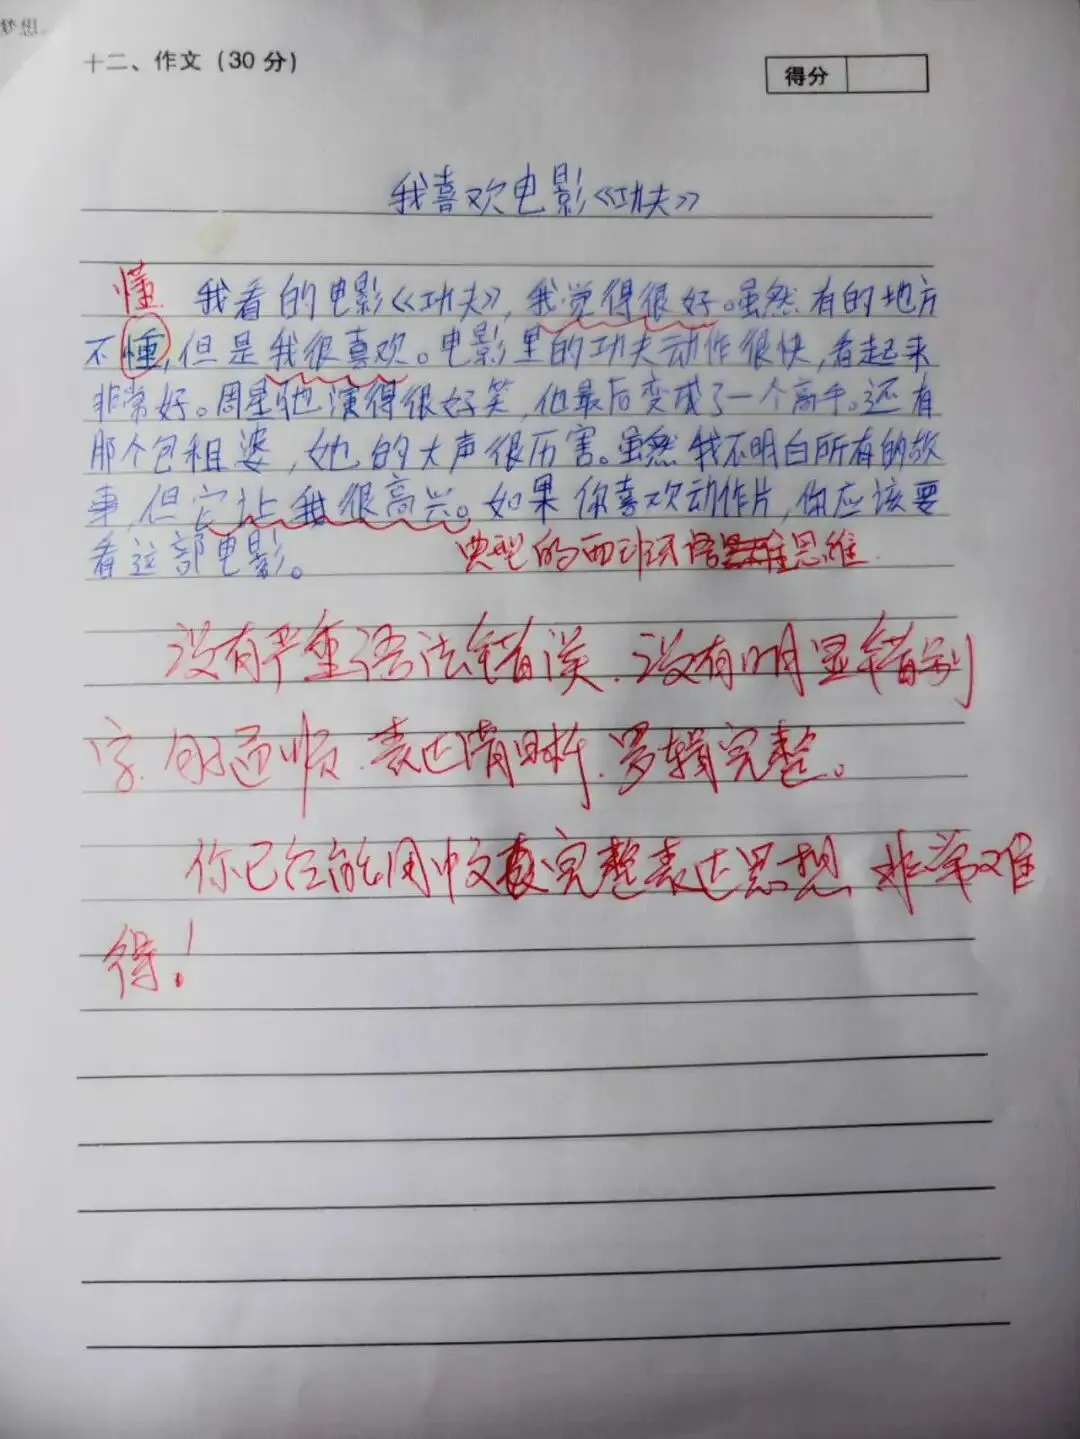 梦想。
十二、作文（30 分）
得分
我喜欢电影《功夫》
懂
我看的电影《功夫》，我觉得很好。虽然有的地方
不懂，但是我很喜欢。电影里的功夫动作很快，看起来
非常好。周星驰演得很好笑，他最后变成了一个高手。还有
那个包租婆，她的大声很厉害。虽然我不明白所有的故
事，但它让我很高兴。如果你喜欢动作片，你应该要
看这部电影。
典型的西班牙语思维
没有严重语法错误．没有明显错别
字．句子通顺．表达清晰．逻辑完整。
你已经能用中文完整表达思想 非常难
得！